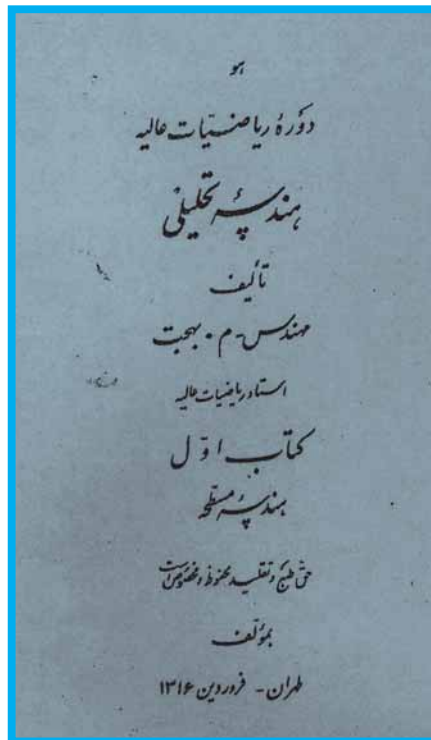 هو
دورهٔ ریاضیّات عالیه
هندسهٔ تحلیلی
تألیف
مهندس - م . بهجت
استاد ریاضیات عالیه
کتاب اوّل
هندسهٔ مسطحه
حقّ طبع و تقلید محفوظ و مخصوص است
بمؤلّف
طهران - فروردین ۱۳۱۶